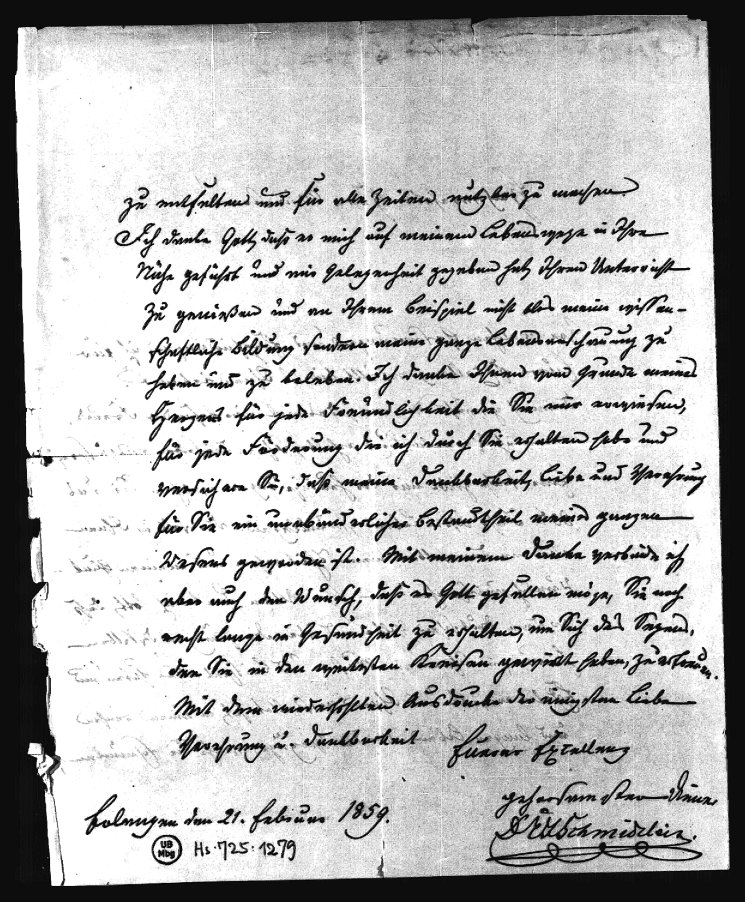 zu entfalten und für alle Zeiten nutzbar zu machen.
Ich danke Gott, daß er mich auf meinem Lebenswege in Ihre
Nähe geführt und mir Gelegenheit gegeben hat, Ihren Unterricht
zu genießen und an Ihrem Beispiel nicht blos meine wissen-
schaftliche Bildung sondern meine ganze Lebensanschauung zu
heben und zu beleben. Ich danke Ihnen vom Grunde meines
Herzens für jede Freundlichkeit die Sie mir erwiesen,
für jede Förderung die ich durch Sie erhalten habe und
versichere Sie, daß meine Dankbarkeit, Liebe und Verehrung
für Sie ein unabänderlicher Bestandtheil meines ganzen
Wesens geworden ist. Mit meinem Danke verbinde ich
aber auch den Wunsch, daß es Gott gefallen möge, Sie noch
recht lange in Gesundheit zu erhalten, um Sich des Segens,
den Sie in den weitesten Kreisen gewirkt haben, zu erfreuen.
Mit dem wiederholten Ausdrucke der innigsten Liebe
Verehrung u. Dankbarkeit Euerer Excellenz
gehorsamster Diener
Erlangen den 21. Februar 1859.
Schmidtlein.
UB
Mbg
Hs. 725:1279